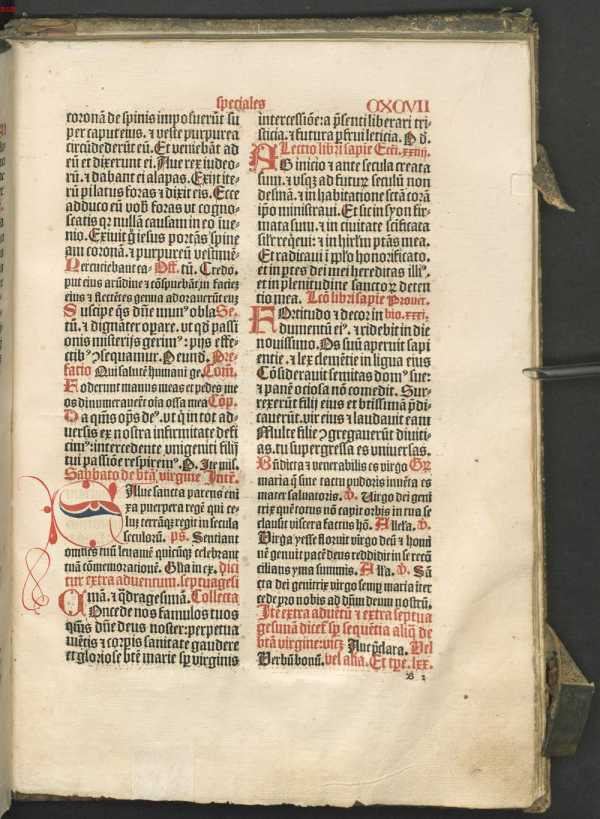 speciales CXCVII
coronā de spinis imposuerūt su
per caput eius. ⁊ veste purpurea
circūdederūt eū. Et veniebāt ad
eū et dixerunt ei. Aue rex iudeo-
rū. ⁊ dabant ei alapas. Exijt ite-
rū pilatus foras ⁊ dixit eis. Ecce
adduco eū vob̄ foras vt cogno-
scatis qr nullā causam in eo īue-
nio. Exiuit g̊ iesus portās spine
am coronā. ⁊ purpureū vestimē-
Percutiebant ea- Off. tū. Credo.
put eius arūdine ⁊ cōspuebāt in faciē
eius ⁊ flectētes genua adorauerūt eū
Suscipe q̄s dn̄e munꝰ obla Se.
tū. ⁊ dignāter opare. vt qd passi
onis misterijs gerimꝰ: pijs effe-
ctibꝰ ↄsequamur. P eund. Pre-
fatio Qui salutē humani ge. Cōm̄.
Foderunt manus meas et pedes me
os dinumerauerūt oīa ossa mea Cōp.
Da qm̄s op̄s deꝰ. vt q̄ in tot ad-
uersis ex nostra infirmitate defi
cimꝰ: intercedente vnigeniti filij
tui passiōe respiremꝰ. P. Ite mis.
Sabbato de btā virgine Intr̄.
Salue sancta parens eni
xa puerpera regē qui ce-
lū terrāq̄ regit in secula
seculorū. ps̄. Sentiant
omnes tuū leuamē quicūq̄ celebrant
tuā cōmemorationē. Gl̄ia in ex. dici
tur extra aduentum. septuagesi
mā. ⁊ q̄dragesimā. Collecta
Concede nos famulos tuos
qm̄s dn̄e deus noster: perpetua
mētis ⁊ corpīs sanitate gaudere
et gloriose btē marie sp virginis
intercessiōe: a p̄senti liberari tri-
sticia. ⁊ futura p̄frui leticia. P d.
Lectio libri sapiē Ecci. xxiiij.
AB inicio ⁊ ante secula creata
sum. ⁊ vsq̄ ad futurꝝ seculū non
desinā. ⁊ in habitatione sctā corā
ip̄o ministraui. Et sic in syon fir-
mata sum. ⁊ in ciuitate scificata
sił'r requeui: ⁊ in hirłm ptās mea.
Et radicaui ī pp̄lo honorificato.
et in ptes dei mei hereditas illiꝰ.
et in plenitudine sanctoꝝ deten
tio mea. Lcō libri sapiē Prouer.
Fortitudo ⁊ decor in bio. xxxi.
dumentū eiꝰ. ⁊ ridebit in die
nouissimo. Os suū aperuit sapi
entie. ⁊ lex clemētie in lingua eiꝰ
Cōsiderauit semitas domꝰ sue:
⁊ panē ociosa nō comedit. Sur-
rexerūt filij eius et btissimā p̄di-
cauerūt. vir eiꝰ ⁊ laudauit eam
Multe filie ↄgregauerūt diuiti-
as. tu supergressa es vniuersas.
Bn̄dicta ⁊ venerabilis es virgo Gr̄.
maria q̄ sine tactu pudoris inuēta es
mater saluatoris. v̄. Virgo dei geni
trix quē totus nō capit orbis in tua se
clausit viscera factus hō. Alleła. v̄.
Virga yesse floruit virgo deū ⁊ homi
nē genuit pacē deus reddidit in se recō
cilians yma summis. Ałła. v̄. Sā
cta dei genitrix virgo semꝑ maria iter
cede pro nobis ad dn̄m deum nostrū.
Itē extra aduētū ⁊ extra septua
gesimā dicet̄ sp sequētia aliq̄ de
btā virgine: vicꝫ Aue p̄clara. Vel
Verbū bonū. vel alia. Et tpe. lxx.
B 2